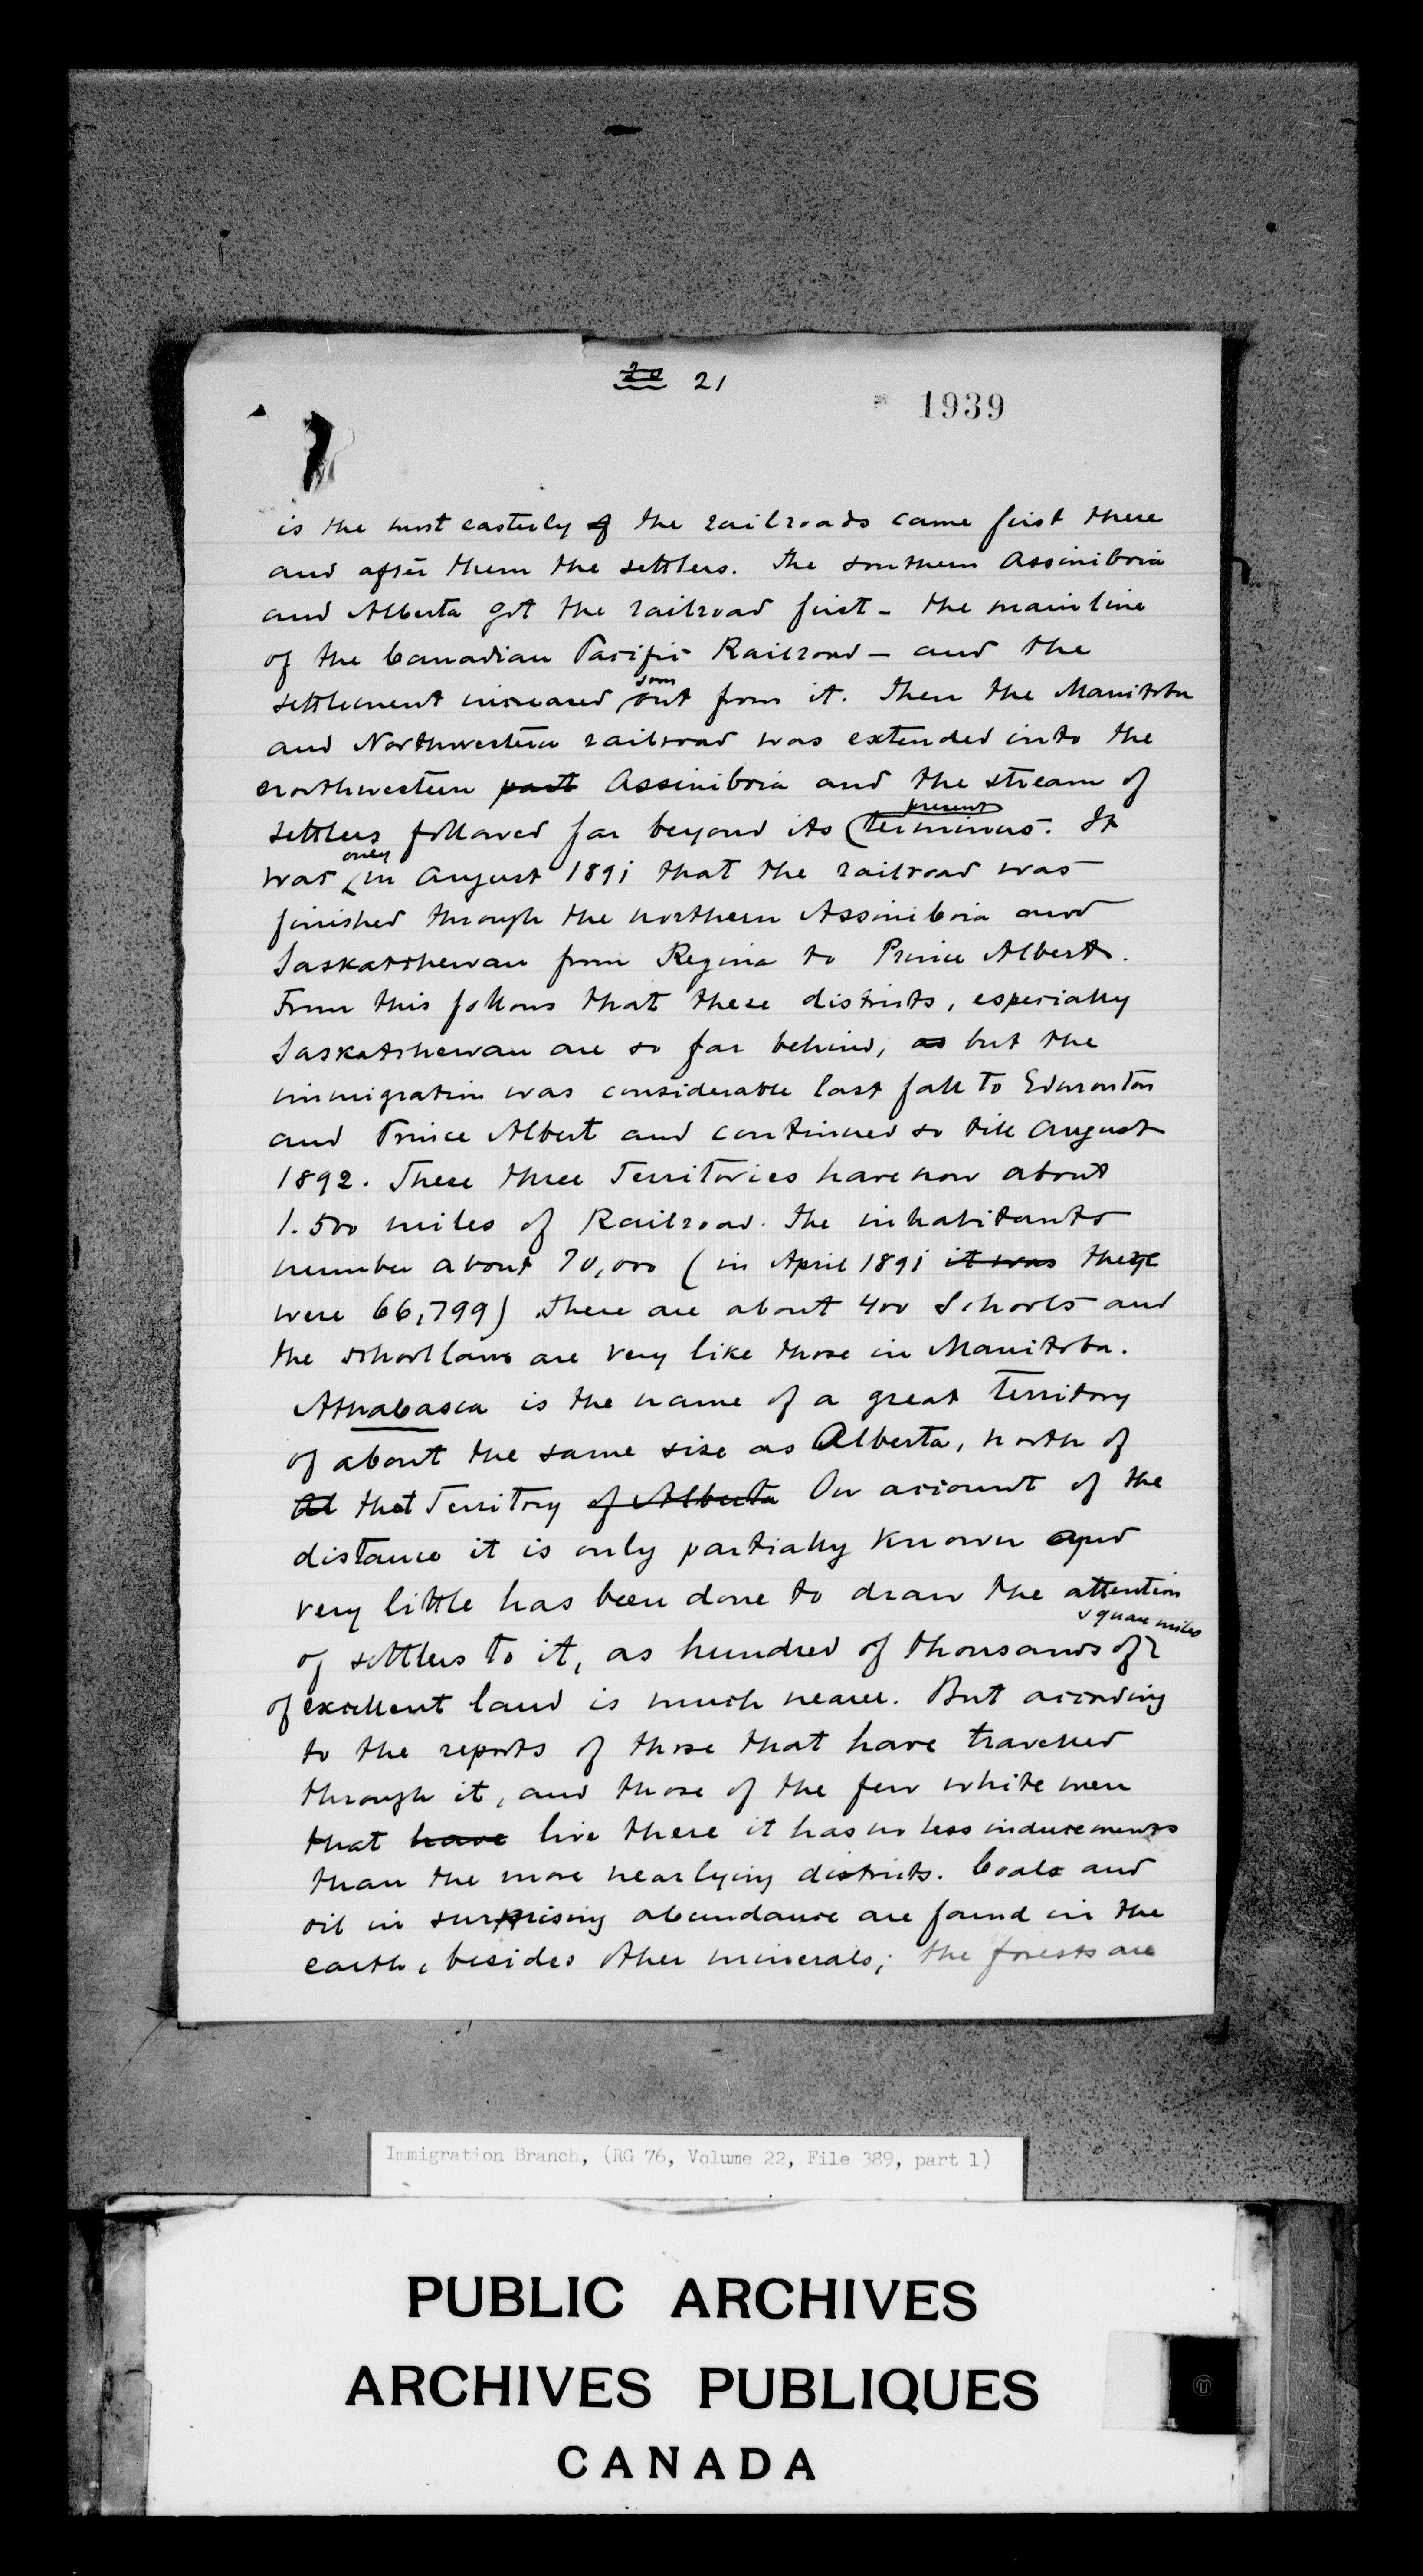 20 21
1939
is the most easterly of the railroads came first there
and after them the settlers. The southern Assiniboia
and Alberta got the railroad first - the mainline
of the Canadian Pacific Railroad - and the
soon
settlement increased out from it. Then the Manitoba
and Northwestern railroad was extended into the
northwestern part Assiniboia and the stream of
present
settlers followed far beyond its terminus. It
only
was in August 1891 that the railroad was
finished through the northern Assiniboia and
Saskatchewan from Regina to Prince Albert.
From this follows that these districts, especially
Saskatchewan are so far behind, as but the
immigration was considerable last fall to Edmonton
and Prince Albert and continued so till August
1892. These three Territories have now about
1.500 miles of Railroad. The inhabitants
number about 70,000 (in April 1891 it was there
were 66,799) There are about 400 Schools and
the school laws are very like those in Manitoba.
Athabasca is the name of a great Territory
of about the same size as Alberta, north of
Al that Territory of Alberta On account of the
distance it is only partially known and
very little has been done to draw the attention
square miles
of settlers to it, as hundred of thousands of
of excellent land is much nearer. But according
to the reports of those that have travelled
through it, and those of the few white men
that have live there it has no less inducements
than the more near lying districts. Coals and
oil in surprising abundance are found in the
earth, besides other minerals; the forests are
Immigration Branch, (RG 76, Volume 22, File 389, part 1)
PUBLIC ARCHIVES
ARCHIVES PUBLIQUES
CANADA